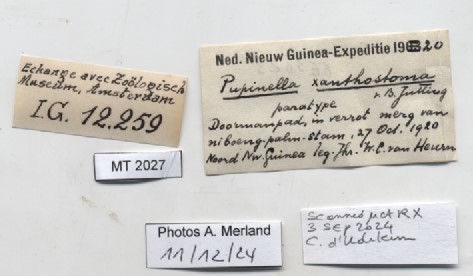 Echange avec Zoölogisch
Museum, Amsterdam
I.G. 12.259
MT 2027
Ned. Nieuw Guinea-Expeditie 1920
Pupinella xanthostoma
v. B. Jutting
paratype
Doormanpad, in verrot merg van
niboeng-palm-stam. 27 Oct. 1920
Noord Nw. Guinea leg. Jhr. W.C. van Heurn
Photos A. Merland
11/12/24
Scanned µCT RX
3 Sep 2024
C. d'Udekem